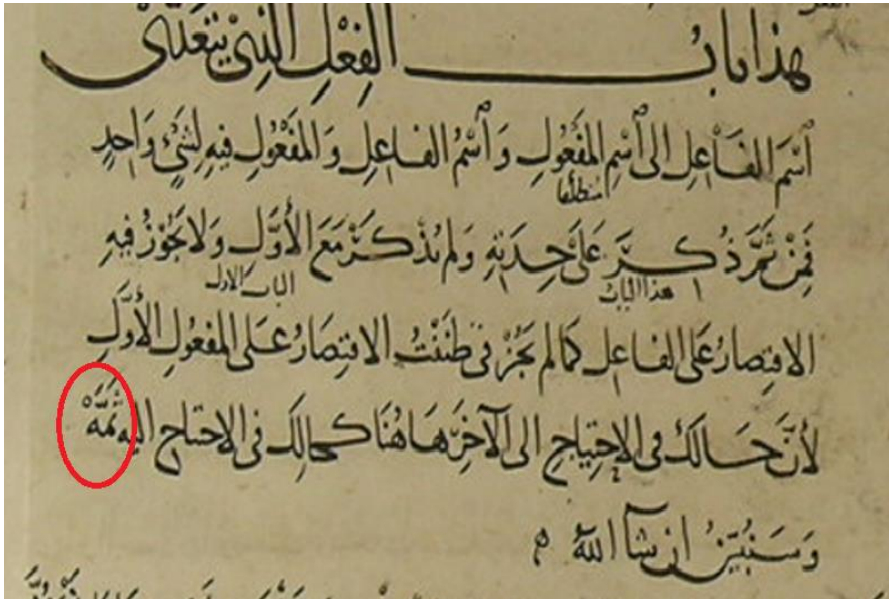 هذا باب الفِعْلِ الَّذِي يَتَعَدَّى
ٱسْمَ الفَاعِلِ الى ٱسْمِ المَفْعُولِ وَٱسْمُ الفاعِلِ وَالمَفْعُولِ فِيهِ لِشَيْءٍ وَاحِدٍ
مُنطلقا
فَمِنْ ثَمَّ ذُكِرَ عَلَى حِدَتِهِ وَلَمْ يُذْكَرْ مَعَ الأَوَّلِ وَلا يَجُوزُ فِيهِ
هذا الباب الباب الاول
الاقتِصارُ عَلَى الفاعِلِ كَمَا لم يَجُزْ فى ظَنَنْتُ الاقتِصَارُ عَلَى المفعُولِ الأَوَّلِ
لأَنَّ حَالَكَ فى الإحتِيَاجِ الى الآخِرِ هَاهُنَا كحالِكَ فى الاحتياجِ اليه ثَمَّهْ
وَسَنُبَيِّنُ ان شآ اللهُ ه